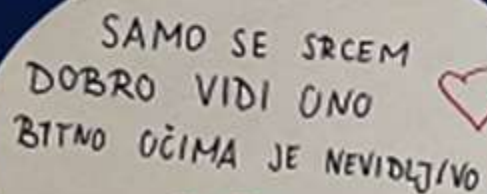 SAMO SE SRCEM
DOBRO VIDI ONO
BITNO OČIMA JE NEVIDLJIVO